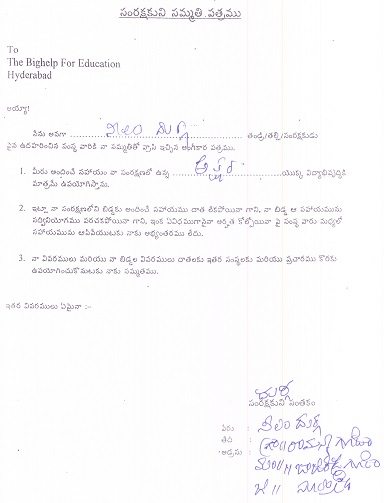 సంరక్షకుని సమ్మతి పత్రము
To
The Bighelp For Education
Hyderabad
అయ్యా!
నేను అనగా నీలం దుర్గ తండ్రి/తల్లి/సంరక్షకుడు
పైన ఉదహరించిన సంస్థ వారికి నా సమ్మతితో వ్రాసి ఇచ్చిన అంగీకార పత్రము.
1. మీరు అందించే సహాయం నా సంరక్షణలో ఉన్న యొక్క విద్యాభివృద్ధికి
మాత్రమే ఉపయోగిస్తాను.
2. ఇట్లా నా సంరక్షణలోని బిడ్డకు అందించే సహాయము దాత లేకపోయినా గాని, నా బిడ్డ ఆ సహాయమును
సద్వినియోగము పరచకపోయినా గాని, ఇంక ఏవిధముగానైనా అర్హత కోల్పోయినా పై సంస్థ వారు మధ్యలో
సహాయమును ఆపివేయుటకు నాకు అభ్యంతరము లేదు.
3. నా వివరములు మరియు నా బిడ్డల వివరములు దాతలకు ఇతర సంస్థలకు మరియు ప్రచారము కొరకు
ఉపయోగించుకొనుటకు నాకు సమ్మతము.
ఇతర వివరములు ఏమైనా :-
దుర్గ
సంరక్షకుని సంతకం
పేరు : నీలం దుర్గ
తేది :
అడ్రసు :